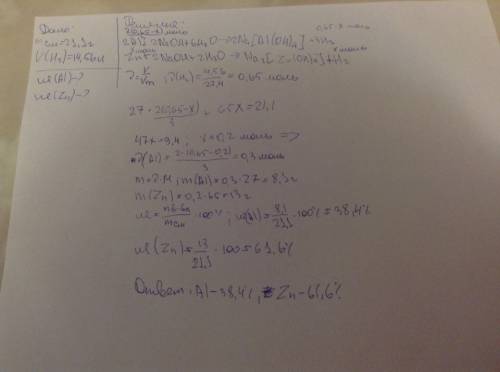 Дано:
mсм=21,1г
V(H₂)=14,56л
w(Al)-?
w(Zn)-?
Решение:
0,65-x моль
2Al+2NaOH+6H₂O→2Na[Al(OH)₄]+3H₂
x моль
Zn+2NaOH+2H₂O→Na₂[Zn(OH)₄]+H₂
ν=V/Vm; ν(H₂)=14,56/22,4=0,65 моль
27·2(0,65-x)/3+65x=21,1
47x=9,4; x=0,2 моль =>
ν(Al)=2·(0,65-0,2)/3=0,3 моль
m=ν·M; m(Al)=0,3·27=8,1г
m(Zn)=0,2·65=13г
·100%; w(Al)=8,1/21,1·100%=38,4%
w(Zn)=13/21,1·100=61,6%
Ответ: Al-38,4%; Zn-61,6%